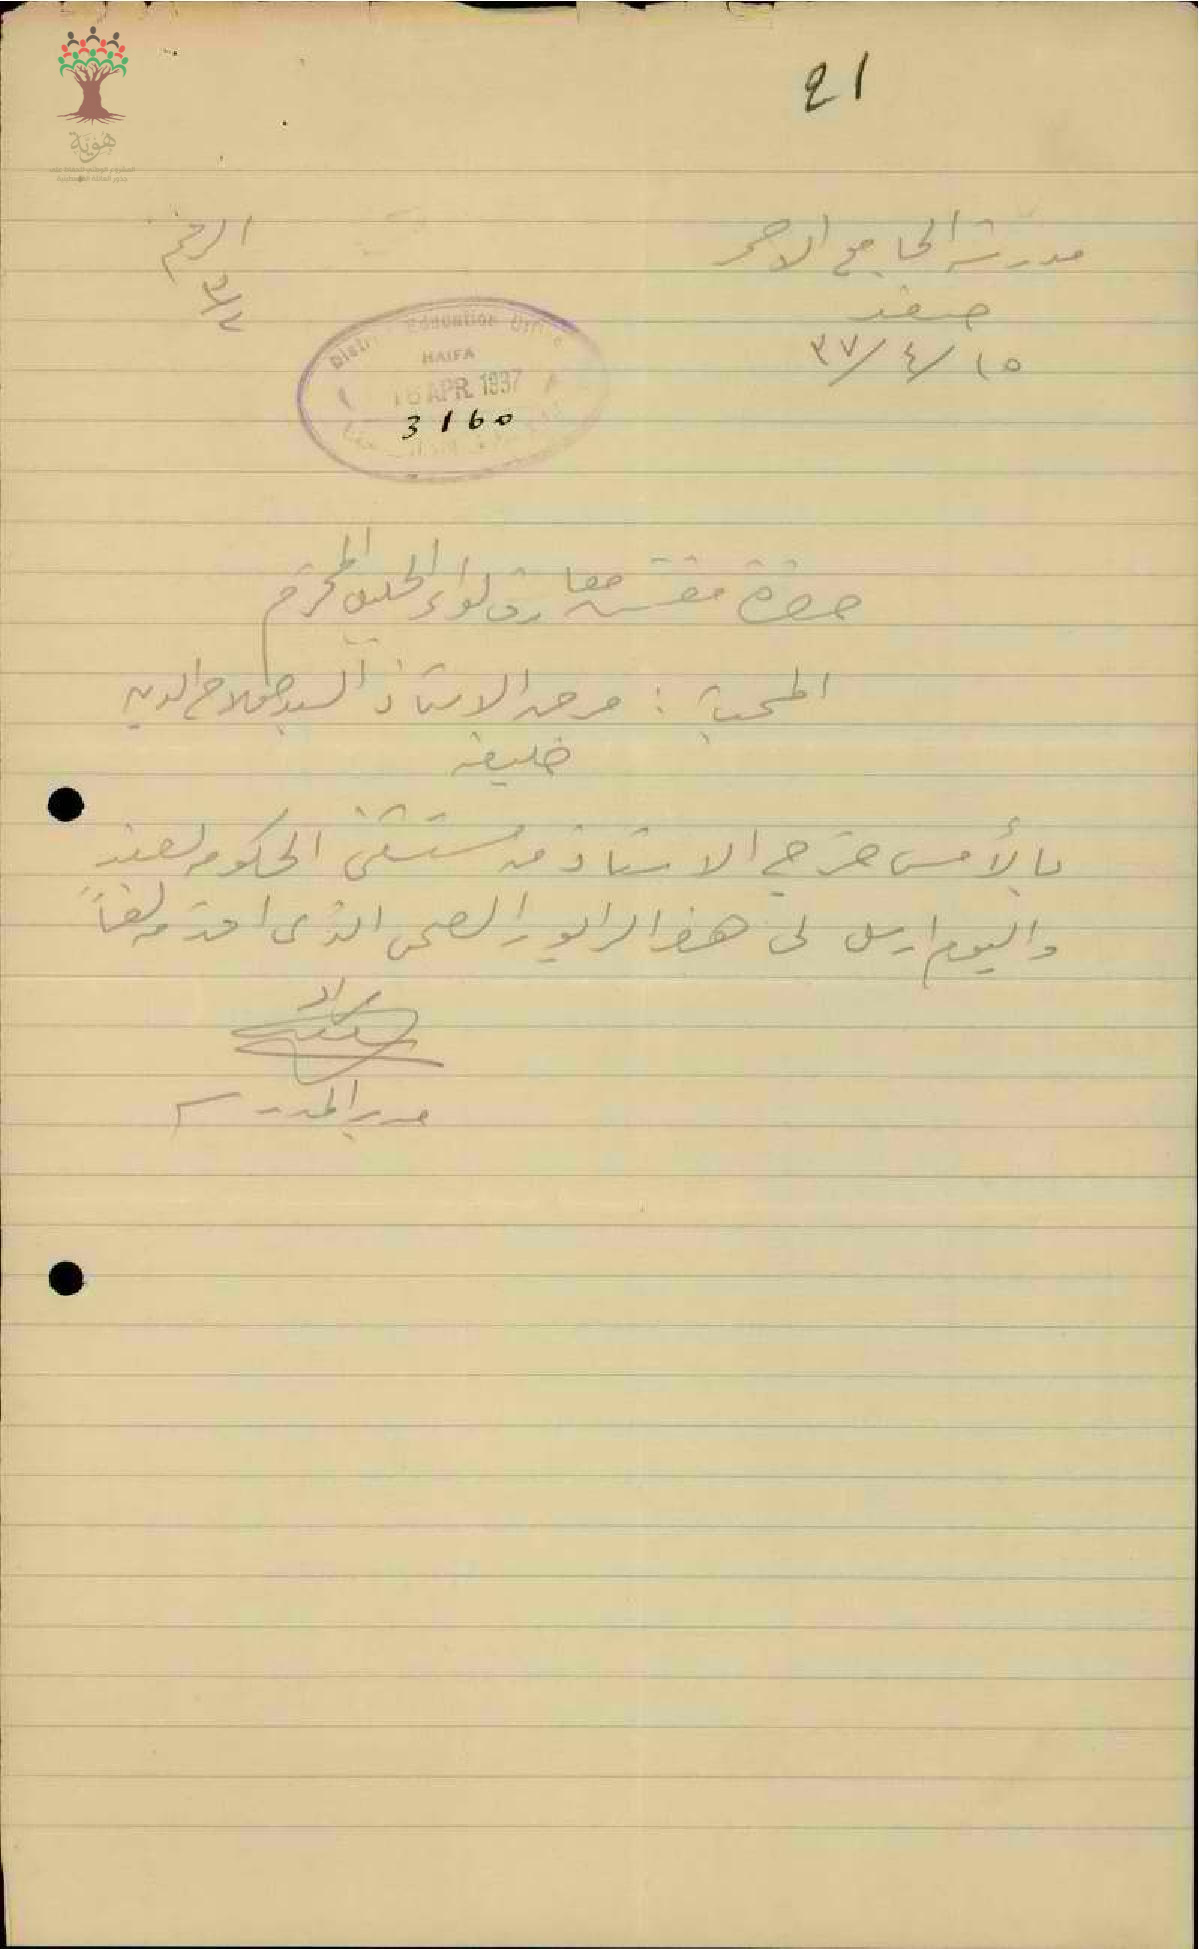 21
هوية
مدرسة الجامع الاحمر
صفد
١٥/٤/٣٧
الرقم
District Education Office
HAIFA
16 APR 1937
3160
حضرة مفتش معارف لواء الجليل المحترم
مرض الاستاذ السيد صلاح الدين
خليفه
بالأمس خرج الاستاذ من مستشفى الحكومه لصفد
واليوم ارسل لي هذا الرابور الصحي الذي اقدمه لفاً
مدير المدرسة